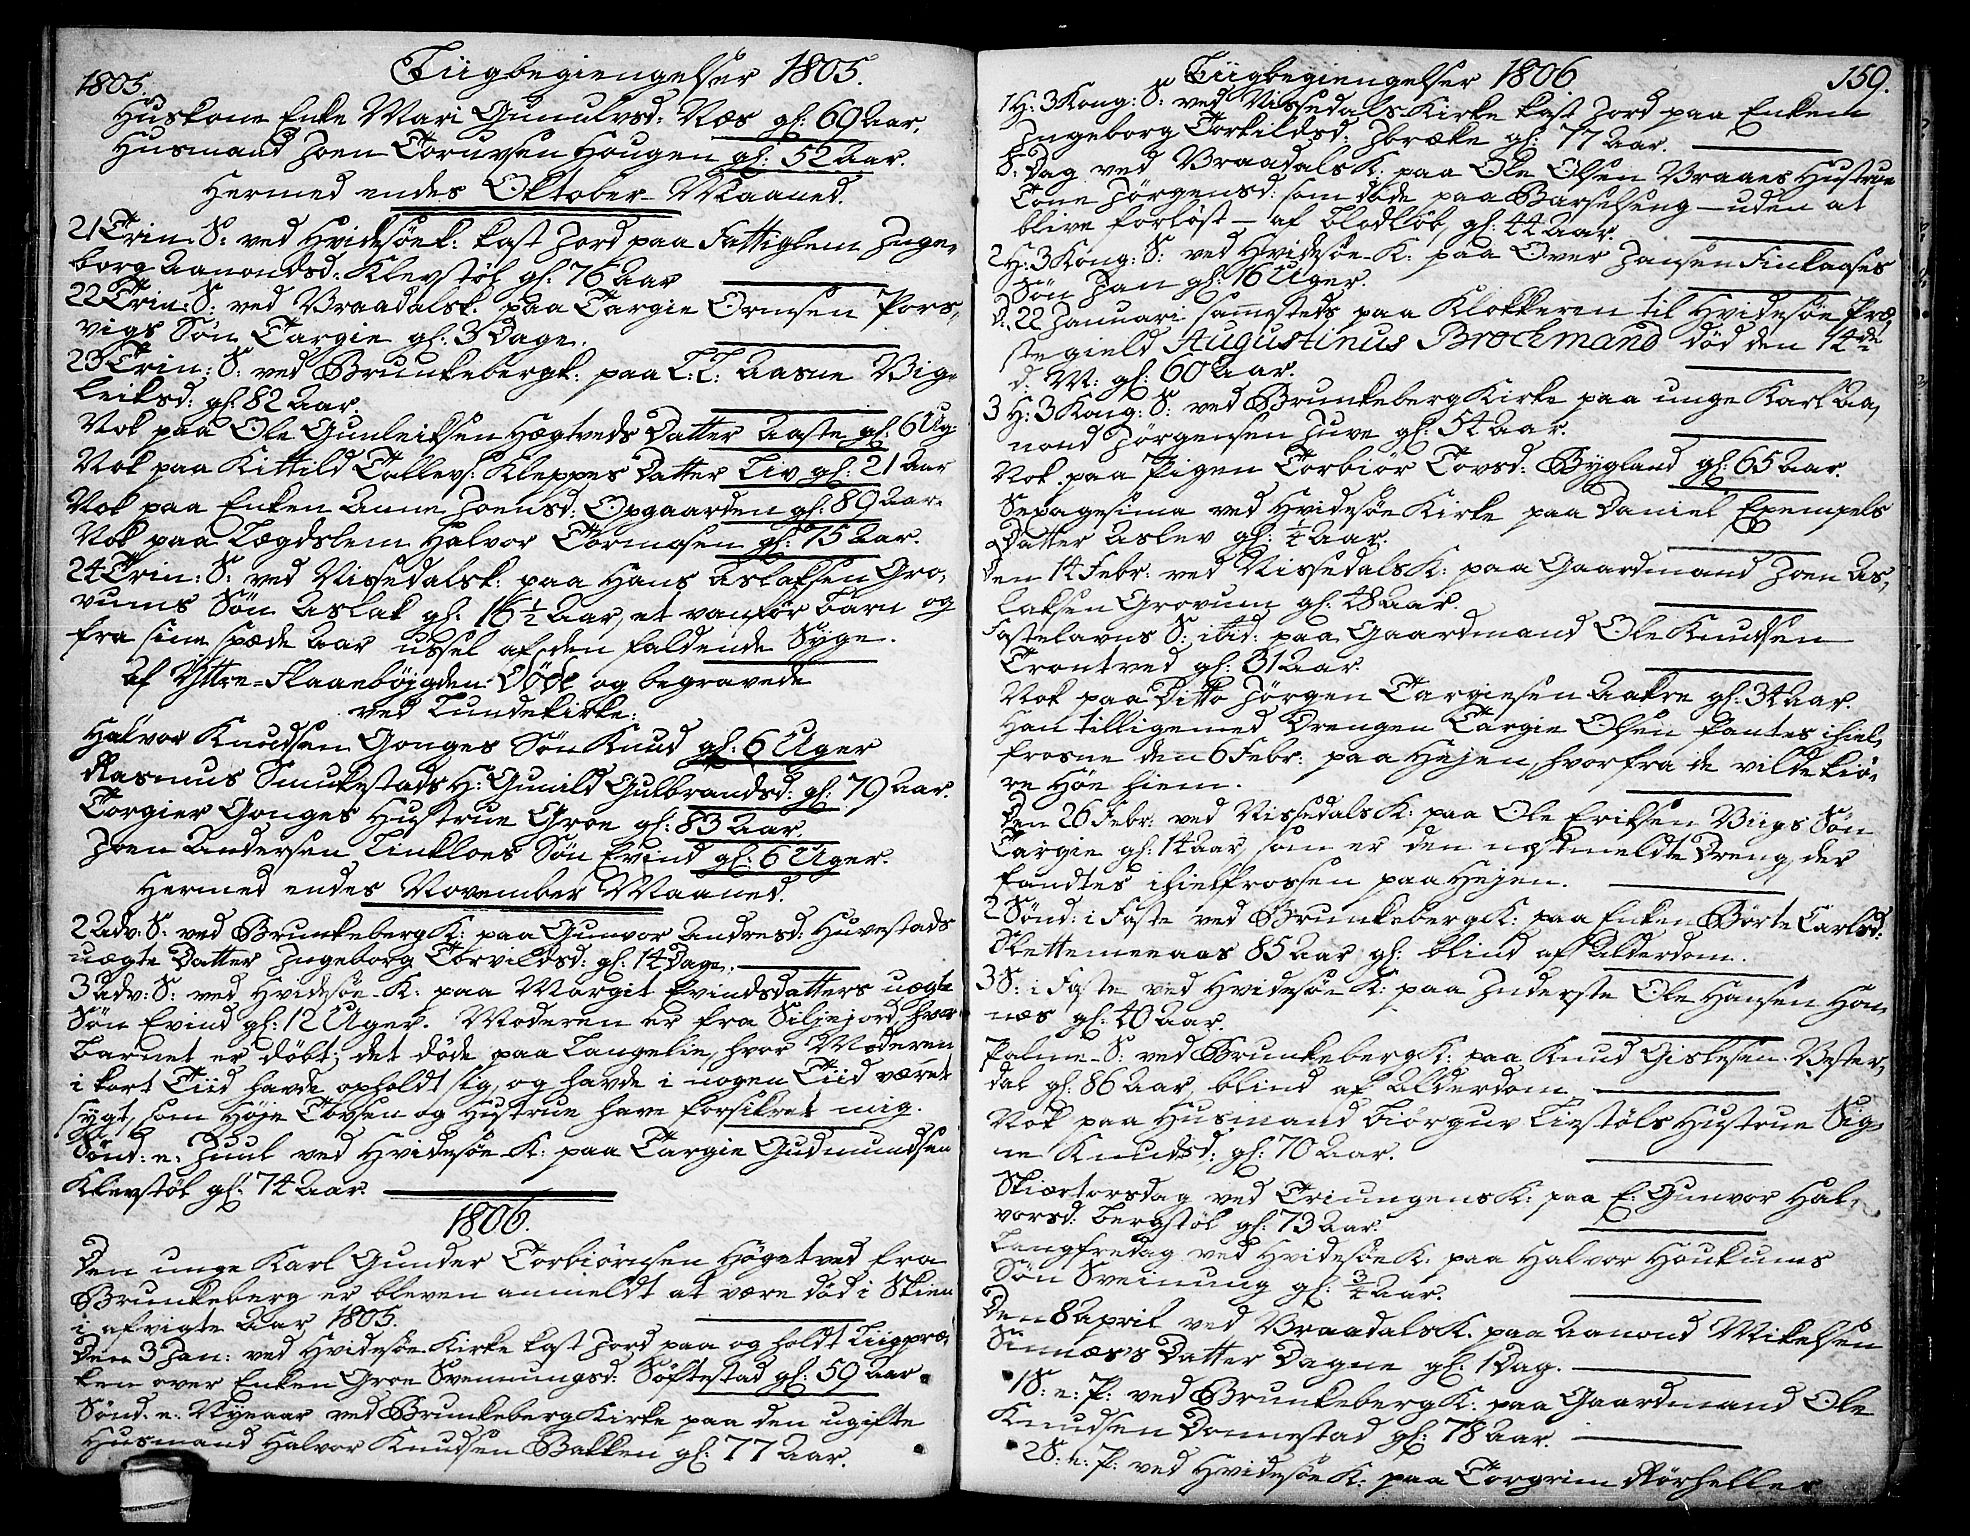 1805.
Liigbegiengelser 1805.
Huskone Enke Mari Gunulvsd: Næs gl: 60 Aar.
Husmand Joen Torufsen Hougen gl: 52 Aar.
Hermed endes Oktober Maaned.
21 Trin. S: ved Hvidesöek: kast Jord paa Fattiglem Inge,
borg Aanondsd: Klevstöl gl: 76 Aar
22 Trin: S: ved Vraadalsk: paa Targie Ornsen Pors,
vigs Sön Targie gl: 3 Dage.
23 Trin: S: ved Brunkebergk: paa L: L: Aasne Vig,
leiksd: gl: 82 Aar.
Nok paa Ole Gunleiksen Hægtveds Datter Aaste gl: 6 Ug:
Nok paa Kittild Tallevs: Kleppes Datter Liv gl: 21 Aar
Nok paa Enken Anne Joensd: Opgaarden gl: 89 Aar.
Nok paa Lægdslem Halvor Tormosen gl: 75 Aar.
24 Trin: S: ved Nissedalsk: paa Hans Aslaksen Gro,
vums Sön Aslak gl: 16 1/2 Aar, et vanför Barn og
fra sine spæde Aar ussel af den faldende Syge.
Af Yttre-Flaanebøigden Døde og begravede
ved Lundekirke:
Halvor Knudsen Gonges Sön Knud gl: 6 Uger
Rasmus Smukestads H: Gunild Gulbrandsd: gl: 79 Aar.
Torgier Gonges Hustrue Groe gl: 83 Aar.
Joen Andersen Linkloes Sön Evind gl: 6 Uger.
Hermed endes November Maaned.
2 Adv: S: ved Brunkeberg K: paa Gunvor Andresd: Huvestads
uægte Datter Ingeborg Torvildsd: gl: 14 Dage.
3 Adv: S: ved Hvidesöe K: paa Margit Evindsdatters uægte
Sön Evind gl: 12 Uger. Moderen er fra Siljejord, hvor
Barnet er döbt; det döde paa Langelie, hvor Moderen
i kort Tiid havde opholdt sig, og havde i nogen Tiid været
sygt, som Höje Tovsen og Hustrue have forsikret mig.
Sönd: e: Juul ved Hvidesöe K: paa Targie Gudmundsen
Klevstöl gl: 74 Aar.
1806.
Den unge Karl Gunder Torbiörnsen Högetved fra
Brunkeberg er bleven anmeldt at være död i Skien
i afvigte Aar 1805.
Den 3 Jan: ved Hvidesöe Kirke kast Jord paa og holdt Liigpræ,
ken over Enken Groe Svennungsd: Söftestad gl: 59 Aar.
Sönd. e: Nyeaar ved Brunkeberg Kirke paa den ugifte
Husmand Halvor Knudsen Bakken gl: 77 Aar.
Liigbegiengelser 1806.
159.
1 H: 3 Kong: S: ved Nissedals Kirke kast Jord paa Enken
Ingeborg Torkildsd: gl: 77 Aar.
S. Dag ved Vraadals K: paa Ole Olsen Vraaes Hustrue
Tone Jörgensd: som döde paa Barselseng - uden at
blive forlöst - af Blodlöb, gl: 44 Aar.
2 H: 3 Kong: S: ved Hvidesöe K: paa Over Jansen Finlaases
Sön Jan gl: 16 Uger.
D: 22 Januari samesteds paa Klokkeren til Hvidesöe Præ,
stegield Augustinus Brochmand död den 14de
d: M: gl: 60 Aar.
3 H: 3 Kong: S: ved Brunkeberg Kirke paa unge Karl Aa,
nond Jörgensen Juve gl: 54 Aar.
Nok paa Pigen Torbiör Tovsd: Bygland gl: 65 Aar.
Sepagesima ved Hvidesöe Kirke paa Daniel Exempels
Datter Aslev gl: 1/4 Aar.
Den 14 Febr: ved Nissedals K: paa Gaardmand Joen As,
laksen Grovum gl: 48 Aar.
Fastelavns S: ibid: paa Gaardmand Ole Knudsen
Trontved gl: 31 Aar
Nok paa Ditto Jörgen Targiesen Aakre gl: 34 Aar.
Han tilligemed Drengen Targie Olsen fantes ihiel,
frosne den 6 Febr: paa Hejen, hvorfra de vilde kiö,
re Höe hiem.
Den 26 Febr: ved Nissedals K: paa Ole Eriksen Viigs Sön
Targie gl: 14 Aar, som er den næstmeldte Dreng, der
fandtes ihielfrossen paa Hejen.
2 Sönd: i Faste ved Brunkeberg K: paa Enken Börte Carlsd:
Slettemeeaas 85 Aar gl: blind af Alderdom.
3 S: i Faste ved Hvidesöe K: paa Inderste Ole Hansen Hon,
næs gl: 40 Aar.
Palme-S: ved Brunkeberg K: paa Knud Gislesen Vester,
dal gl: 86 Aar, blind af Alderdom
Nok paa Husmand Biörgur Liestöls Hustrue Sig,
ne Knudsd: gl: 70 Aar.
Skiærtorsdag ved Triungens K: paa E: Gunvor Hal,
vorsd: Bergstöl gl: 73 Aar.
Langfredag ved Hvidesöe K. paa Halvor Houkums
Sön Sveinung gl: 3/4 Aar.
Den 8 April ved Vraadals K. paa Aanond Mikelsen
Sinnæs's Datter Dagne gl: 1 Dag.
1 S: e: P: ved Brunkeberg K: paa Gaardmand Ole
Knudsen Donnestad gl: 78 Aar.
2 S: e: P: ved Hvidesöe K: paa Torgrim Rörhelles